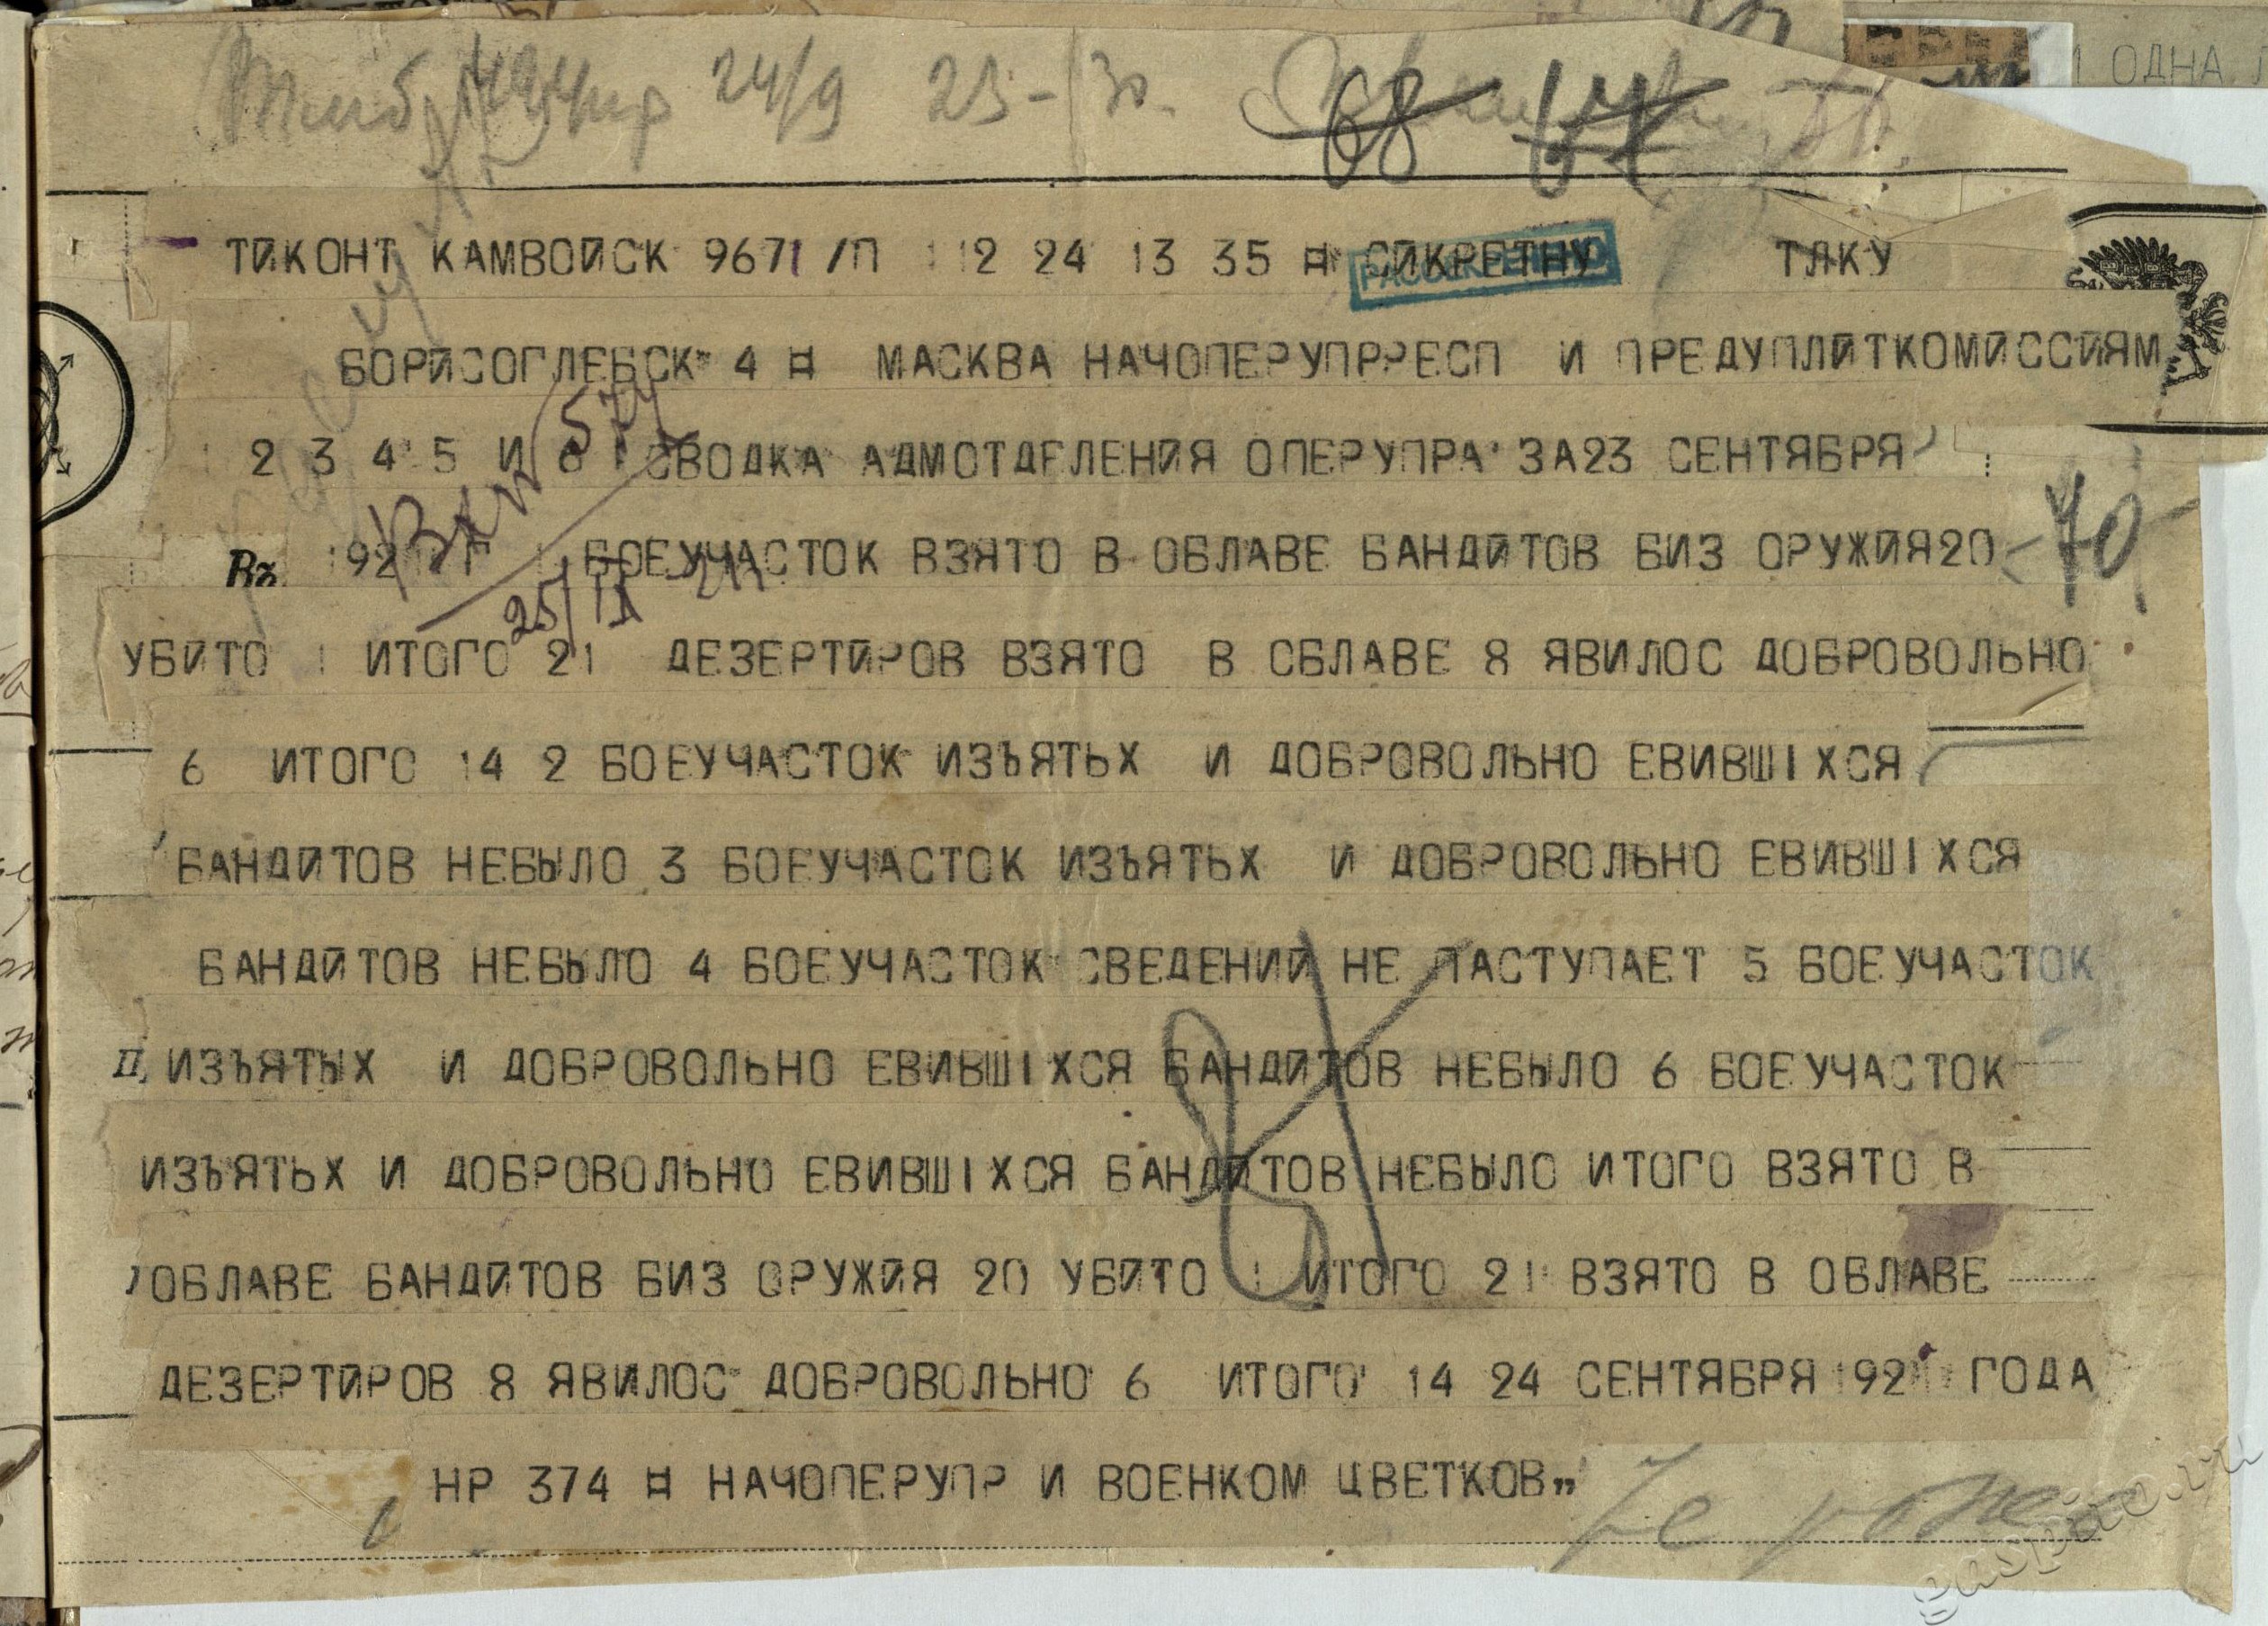 24/9 23-30
68 67
ТИКОНТ КАМВОЙСК 9671/П 112 24 13 35 ¤ СИКРЕТНУ ТЛКУ
РАССЕКРЕЧЕНО
БОРИСОГЛЕБСК 4 ¤ МАСКВА НАЧОПЕРУПРРЕСП И ПРЕДУПЛИТКОМИССИЯМ
1 2 3 4 5 И 6 СВОДКА АДМОТДЕЛЕНИЯ ОПЕРУПРА ЗА23 СЕНТЯБРЯ
Вх. 1921 Г 1 БОЕУЧАСТОК ВЗЯТО В ОБЛАВЕ БАНДИТОВ БИЗ ОРУЖИЯ20
70
25/IX
УБИТО 1 ИТОГО 21 ДЕЗЕРТИРОВ ВЗЯТО В ОБЛАВЕ 8 ЯВИЛОС ДОБРОВОЛЬНО
6 ИТОГО 14 2 БОЕУЧАСТОК ИЗЪЯТЬХ И ДОБРОВОЛЬНО ЕВИВШІХСЯ
БАНДИТОВ НЕБЫЛО 3 БОЕУЧАСТОК ИЗЪЯТЬХ И ДОБРОВОЛЬНО ЕВИВШІХСЯ
БАНДИТОВ НЕБЫЛО 4 БОЕУЧАСТОК СВЕДЕНИЙ НЕ ПАСТУПАЕТ 5 БОЕУЧАСТОК
П, ИЗЪЯТЫХ И ДОБРОВОЛЬНО ЕВИВШІХСЯ БАНДИТОВ НЕБЫЛО 6 БОЕУЧАСТОК
ИЗЪЯТЬХ И ДОБРОВОЛЬНО ЕВИВШІХСЯ БАНДИТОВ НЕБЫЛО ИТОГО ВЗЯТО В
ОБЛАВЕ БАНДИТОВ БИЗ ОРУЖИЯ 20 УБИТО 1 ИТОГО 21 ВЗЯТО В ОБЛАВЕ
ДЕЗЕРТИРОВ 8 ЯВИЛОС ДОБРОВОЛЬНО 6 ИТОГО 14 24 СЕНТЯБРЯ 1921 ГОДА
НР 374 ¤ НАЧОПЕРУПР И ВОЕНКОМ ЦВЕТКОВ„
gaspito.ru
1 ОДНА